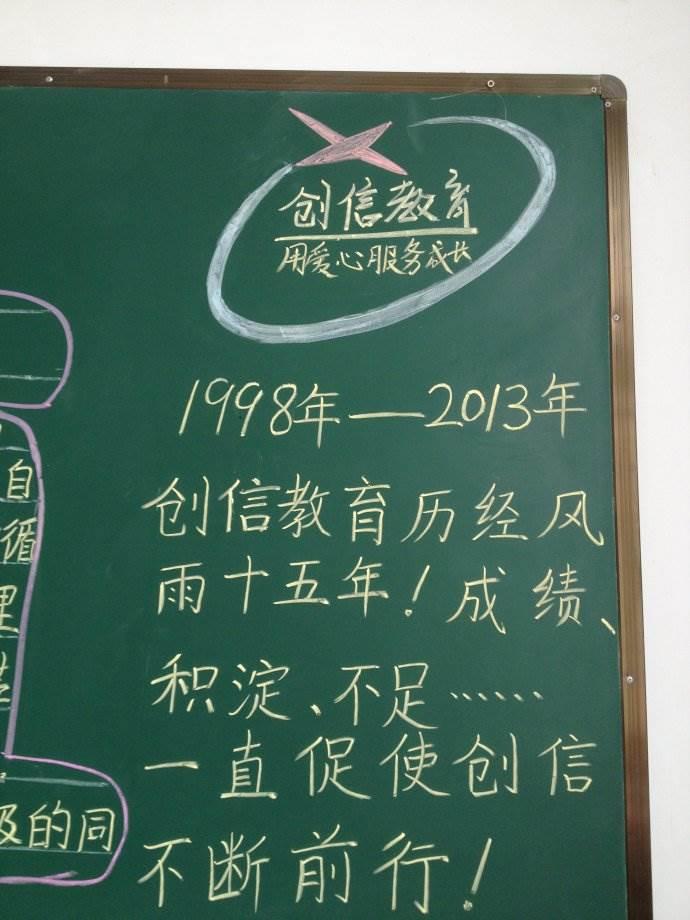 创信教育
用爱心服务成长
1998年—2013年
创信教育历经风
雨十五年！成绩、
积淀、不足……
一直促使创信
不断前行！
自
循
理
级的同